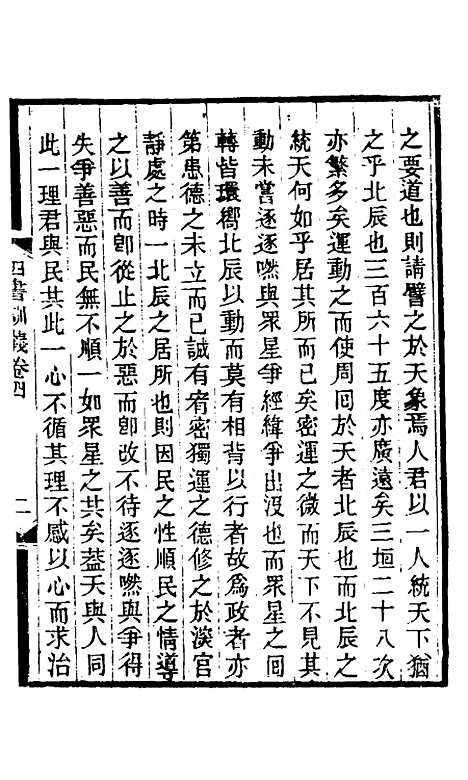 之要道也則請譬之於天象焉人君以一人統天下猶
之乎北辰也三百六十五度亦廣遠矣三垣二十八次
亦繁多矣運動之而使周囘於天者北辰也而北辰之
統天何如乎居其所而已矣密運之微而天下不見其
動未嘗逐逐嘫與眾星爭經緯爭出沒也而眾星之囘
轉皆環嚮北辰以動而莫有相背以行者故爲政者亦
第患德之未立而已誠有宥密獨運之德修之於深宮
靜處之時一北辰之居所也則因民之性順民之情導
之以善而卽從止之於惡而卽改不待逐逐嘫與爭得
失爭善惡而民無不順一如眾星之共矣葢天與人同
此一理君與民共此一心不循其理不感以心而求治
四書訓義卷四
二